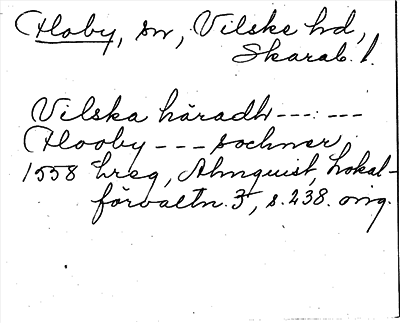 Floby, sn, Vilske hd,
Skarab. l.
Vilska häradh ---:---
Flooby --- sochner
1558 Ereg, Almquist, Lokal-
förvaltn. 3, s. 238. orig.